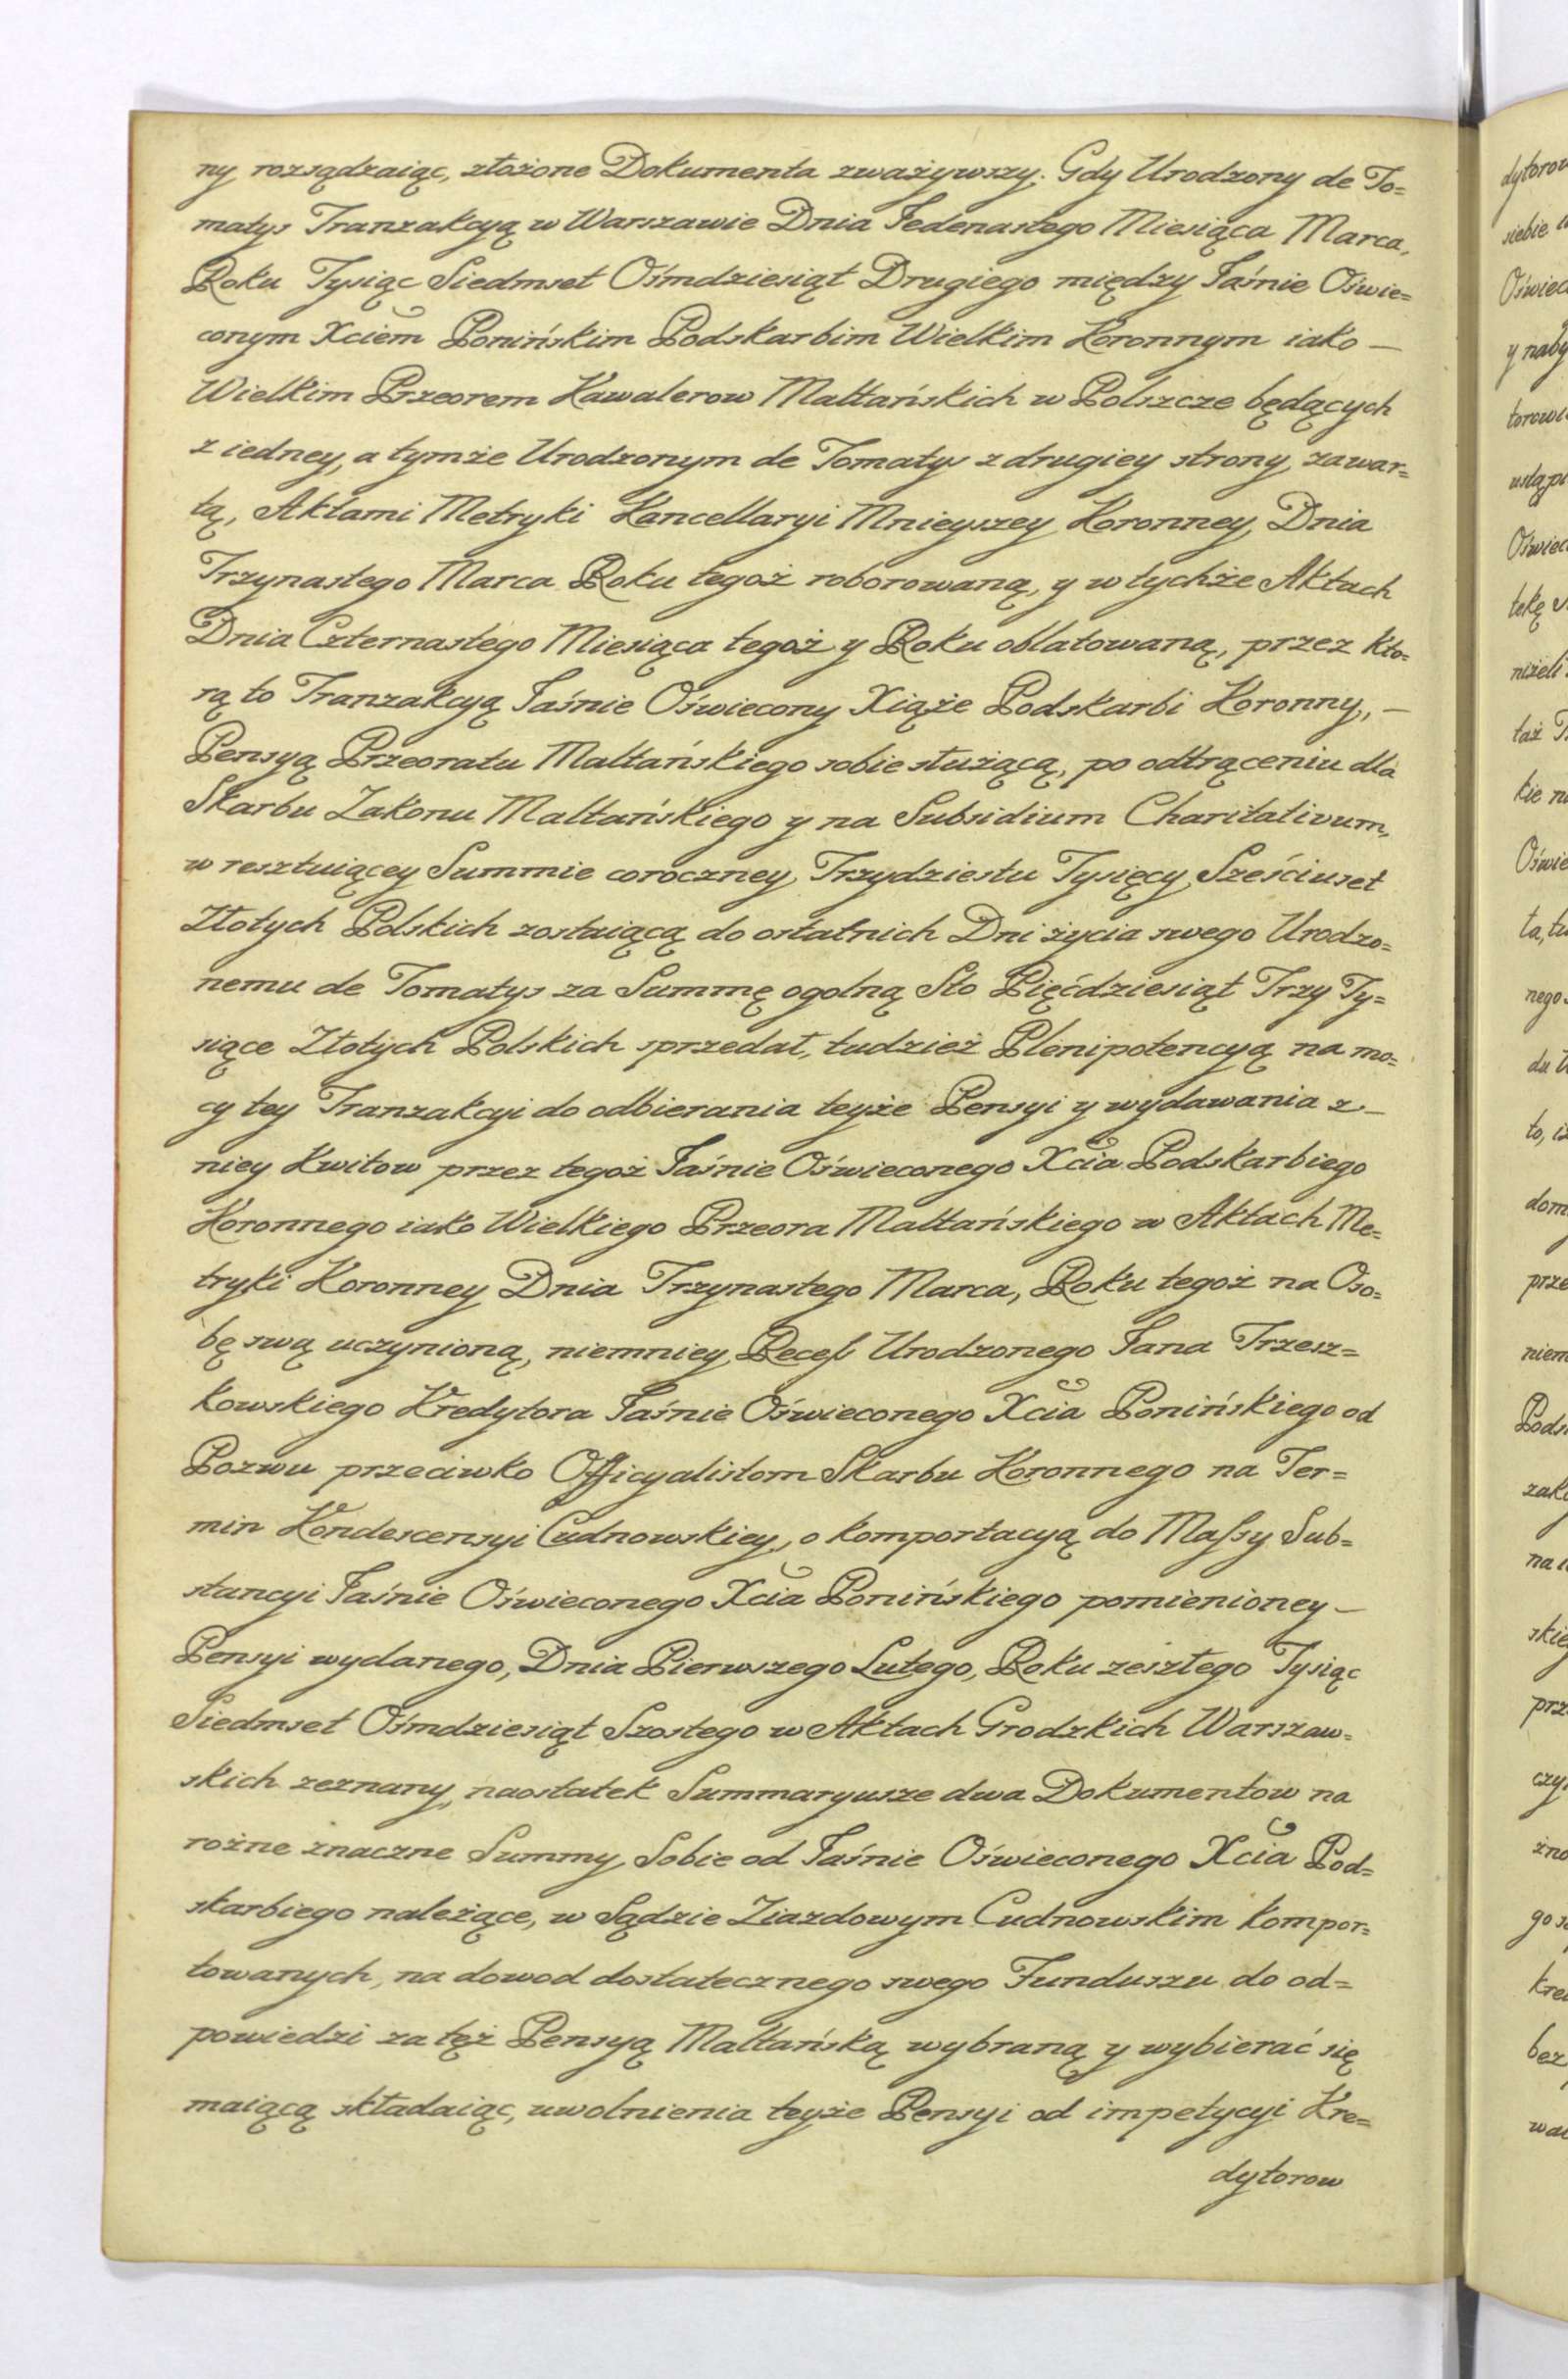 ny rozsądzaiąc, złożone Dokumenta zważywszy. Gdy Urodzony de To=
matys Tranzakcyą w Warszawie Dnia Jedenastego Miesiąca Marca,
Roku Tysiąc Siedmset Ośmdziesiąt Drugiego między Jaśnie Oświe=
conym Xciem Ponińskim Podskarbim Wielkim Koronnym iako —
Wielkim Przeorem Kawalerow Maltańskich w Polszcze będących
z iedney, a tymże Urodzonym de Tomatys z drugiey strony, zawar=
tą, Aktami Metryki Kancellaryi Mnieyszey Koronney, Dnia
Trzynastego Marca Roku tegoż roborowaną, y w tychże Aktach
Dnia Czternastego Miesiąca tegoż y Roku oblatowaną, przez kto=
rą to Tranzakcyą Jaśnie Oświecony Xiąże Podskarbi Koronny, —
Pensyą Przeoratu Maltańskiego sobie służącą, po odtrąceniu dla
Skarbu Zakonu Maltańskiego y na Subsidium Charitativum,
w resztuiącey Summie coroczney, Trzydziestu Tysięcy Sześciuset
Złotych Polskich zostaiącą do ostatnich Dni życia swego Urodzo=
nemu de Tomatys za Summę ogolną Sto Pięćdziesiąt Trzy Ty=
siące Złotych Polskich sprzedał, tudzież Plenipotencyą na mo=
cy tey Tranzakcyi do odbierania teyże Pensyi y wydawania z —
niey Kwitow przez tegoż Jaśnie Oświeconego Xcia Podskarbiego
Koronnego iako Wielkiego Przeora Maltańskiego w Aktach Me=
tryki Koronney Dnia Trzynastego Marca, Roku tegoż na Oso=
bę swą uczynioną, niemniey Recess Urodzonego Jana Trzesz=
kowskiego Kredytora Jaśnie Oświeconego Xcia Ponińskiego od
Pozwu przeciwko Officyalistom Skarbu Koronnego na Ter=
min Kondescensyi Cudnowskiey, o komportacyą do Massy Sub=
stancyi Jaśnie Oświeconego Xcia Ponińskiego pomienioney —
Pensyi wydanego, Dnia Pierwszego Lutego, Roku zeszłego Tysiąc
Siedmset Ośmdziesiąt Szostego w Aktach Grodzkich Warszaw=
skich zeznany, naostatek Summaryusze dwa Dokumentow na
rożne znaczne Summy, Sobie od Jaśnie Oświeconego Xcia Pod=
skarbiego należące, w Sądzie Ziazdowym Cudnowskim kompor=
towanych, na dowod dostatecznego swego Funduszu do od=
powiedzi za tęż Pensyą Maltańską wybraną y wybierać się
maiącą składaiąc, uwolnienia teyże Pensyi od impetycyi Kre=
dytorow